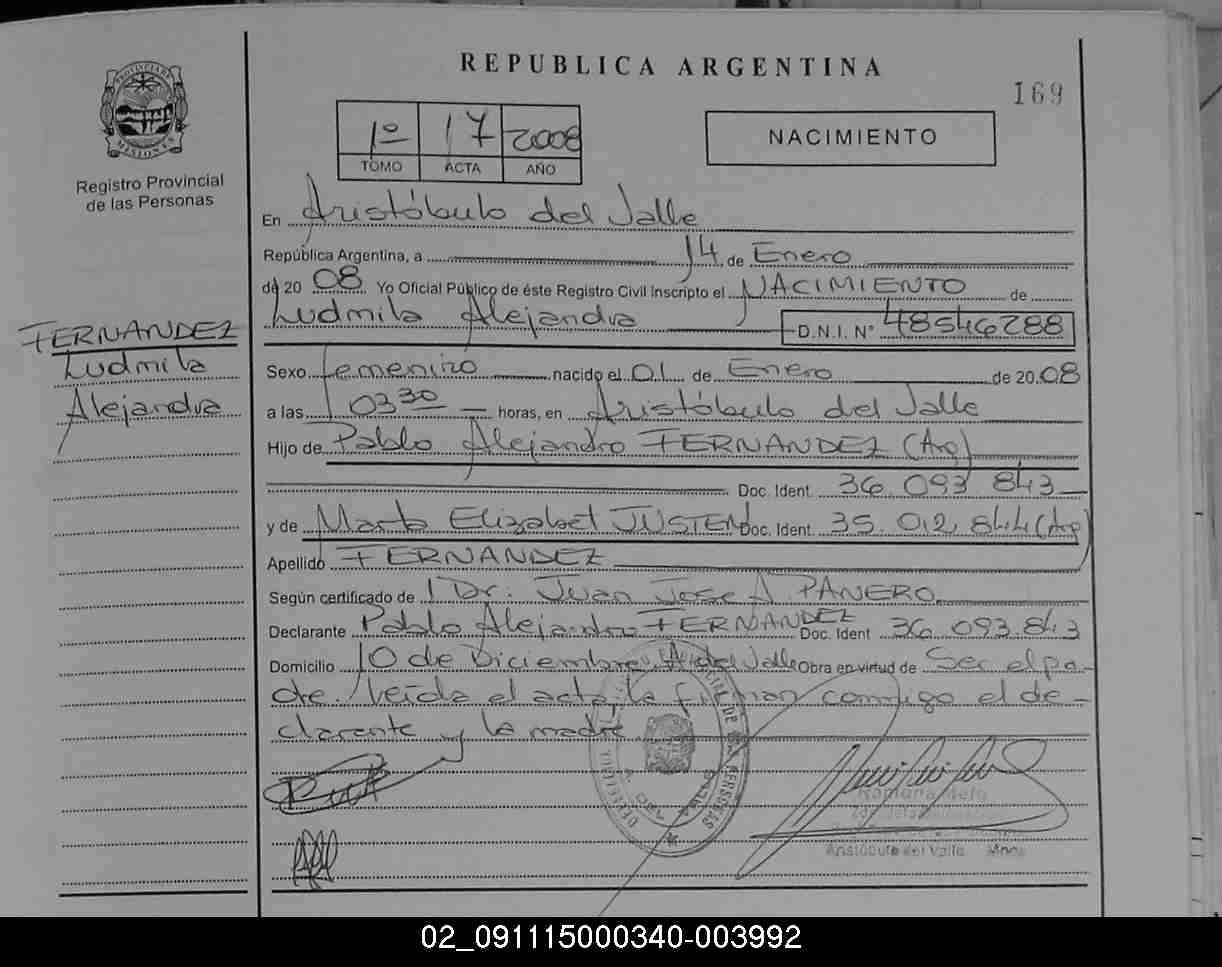 REPUBLICA ARGENTINA
169
PROVINCIA DE MISIONES
Registro Provincial
de las Personas
1º 17 2008
TOMO ACTA AÑO
NACIMIENTO
En Aristóbulo del Valle
República Argentina, a 14 de Enero
de 20 08 Yo Oficial Público de éste Registro Civil Inscripto el NACIMIENTO de
Ludmila Alejandra D.N.I. Nº 48546288
FERNANDEZ
Ludmila
Alejandra
Sexo femenino nacido el 01 de Enero de 20 08
a las 03 30 horas, en Aristóbulo del Valle
Hijo de Pablo Alejandro FERNANDEZ (Arg)
Doc. Ident. 36 093 843
y de Marta Elizabet JUSTEN Doc. Ident. 35 012 844 (Arg)
Apellido FERNANDEZ
Según certificado de Dr. Juan Jose A PANERO
Declarante Pablo Alejandro FERNANDEZ Doc. Ident 36 093 843
Domicilio 10 de Diciembre. A. del Valle Obra en virtud de Ser el pa-
dre. Leída el acta, la firman conmigo el de-
clarante y la madre
DE LAS PERSONAS
Aristóbulo del Valle Mnes
02_091115000340-003992